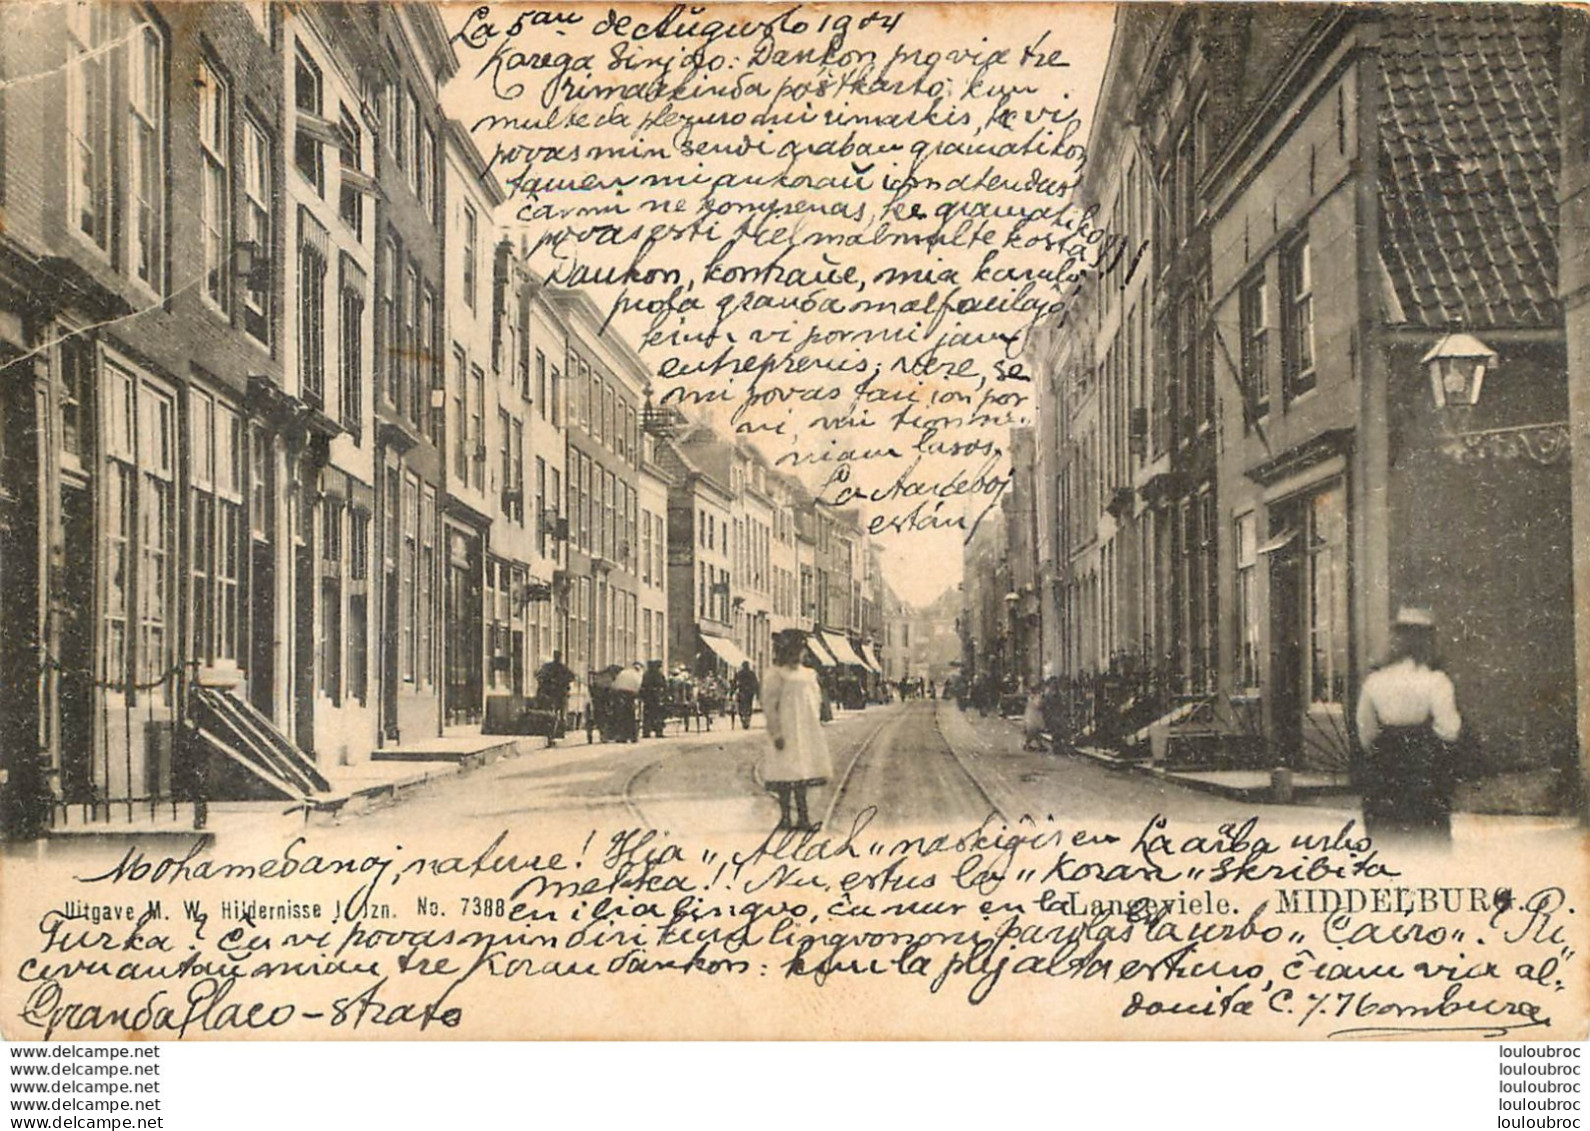 La 5an de Aŭgusto 1904
Karega Sinjoro: Dankon pro via tre
rimarkinda poŝtkarto; kun
multe da plezuro mi rimarkis, ke vi
povas min sendi araban gramatikon
tamen mi ankoraŭ ion atendas
ĉar mi ne komprenas, ke gramatiko
povas esti tiel malmulte kosta!!!
Dankon, kontraŭe, mia kara,
pro la granda malfacilaĵo,
kiun vi por mi jam
entreprenis; vere, se
mi povas fari ion por
vi, vin tion ne
niam lasos.
La Arabeboj
estan
Mohamedanoj, nature! Ilia „Allah" naskiĝis en La arba urbo
mekka!! Nu, estus la „Koran" skribita
Uitgave M. W. Hildernisse J. Jzn. No. 7388
Langeviele. MIDDELBURG.
en ilia lingvo, ĉu nur en la
Turka? Ĉu vi povas min diri kiun lingvon oni parolas la urbo „Cairo".
ĉi vun antaŭ mian, tre Koran dankon: kun la plej alta estimo, ĉiam via al„
donita C. J. Hombure
Granda Placo-strato
www.delcampe.net
www.delcampe.net
www.delcampe.net
www.delcampe.net
www.delcampe.net
louloubroc
louloubroc
louloubroc
louloubroc
louloubroc